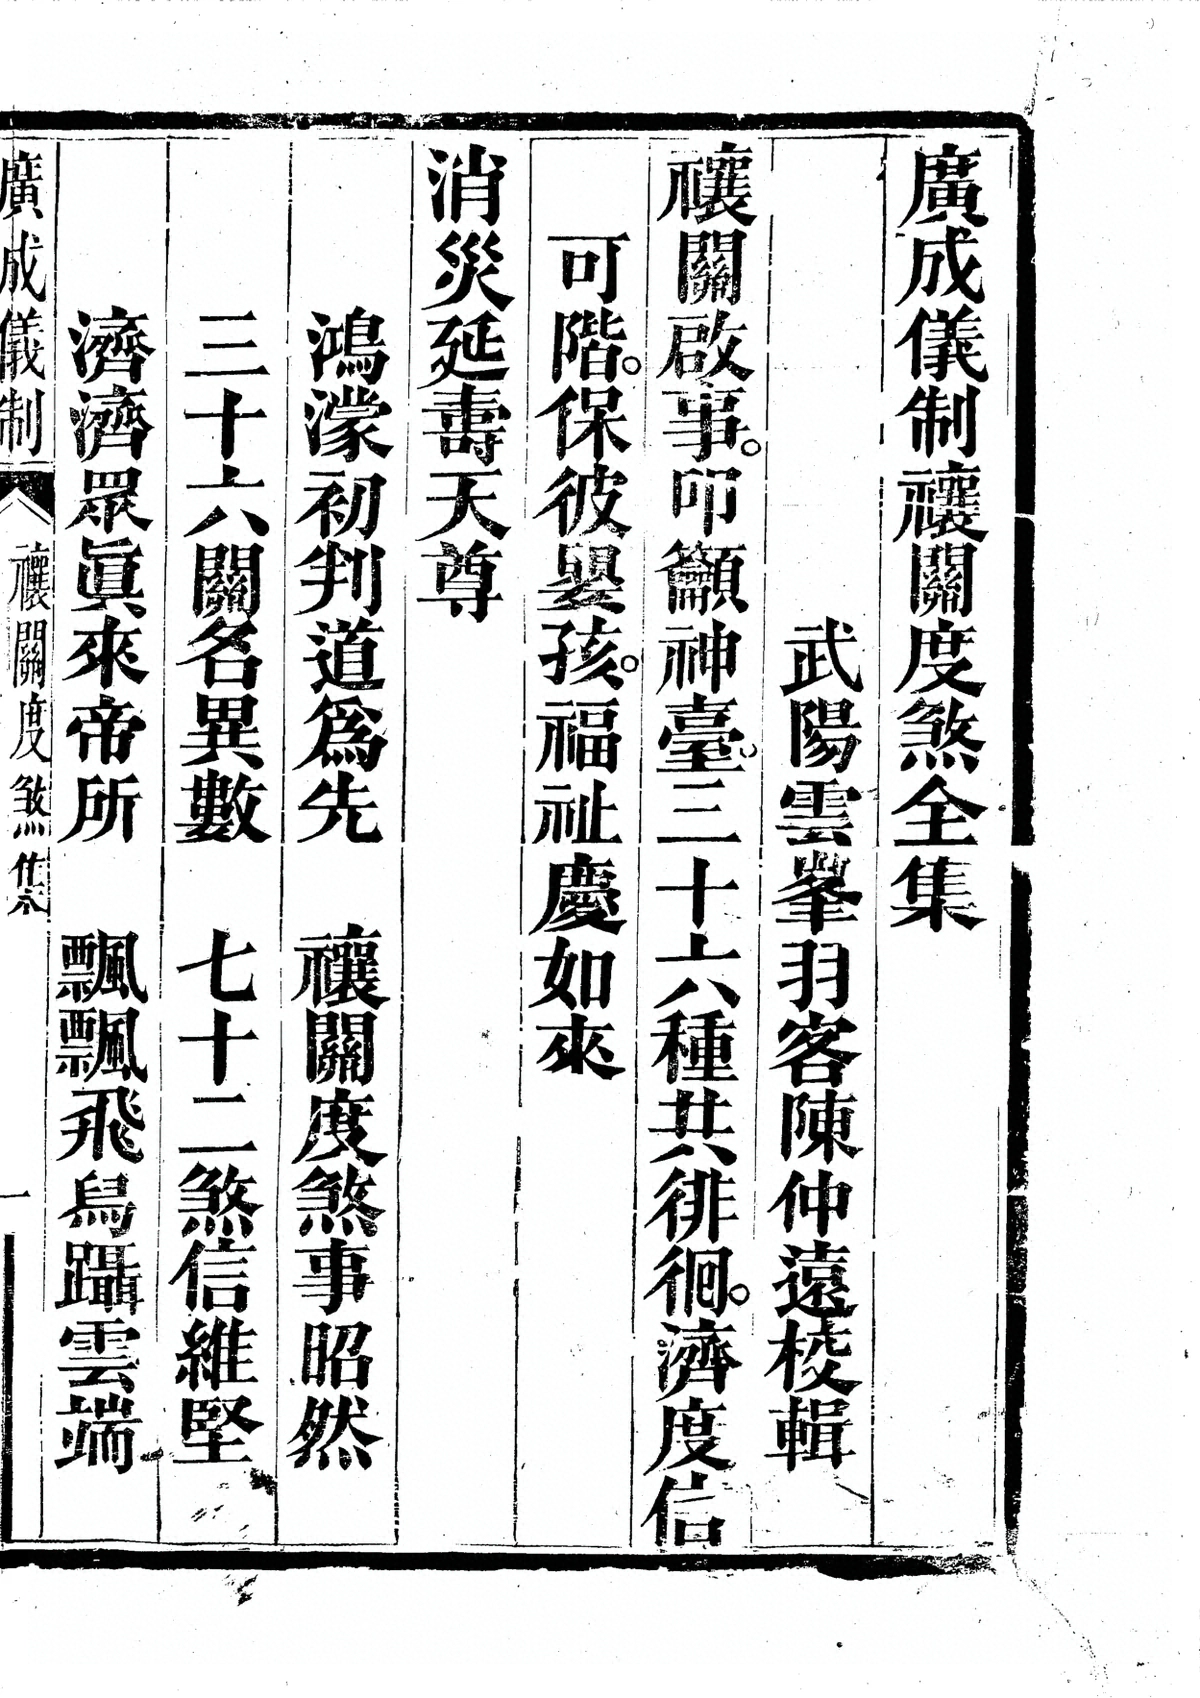 廣成儀制禳關度煞全集
武陽雲峯羽客陳仲遠校輯
禳關啟事。叩籲神臺。三十六種共徘徊。濟度信
可階。保彼嬰孩。福祉慶如來
消災延壽天尊
鴻濛初判道爲先　禳關度煞事昭然
三十六關名異數　七十二煞信維堅
濟濟眾眞來帝所　飄飄飛舄躡雲端
廣成儀制　禳關度煞集　一